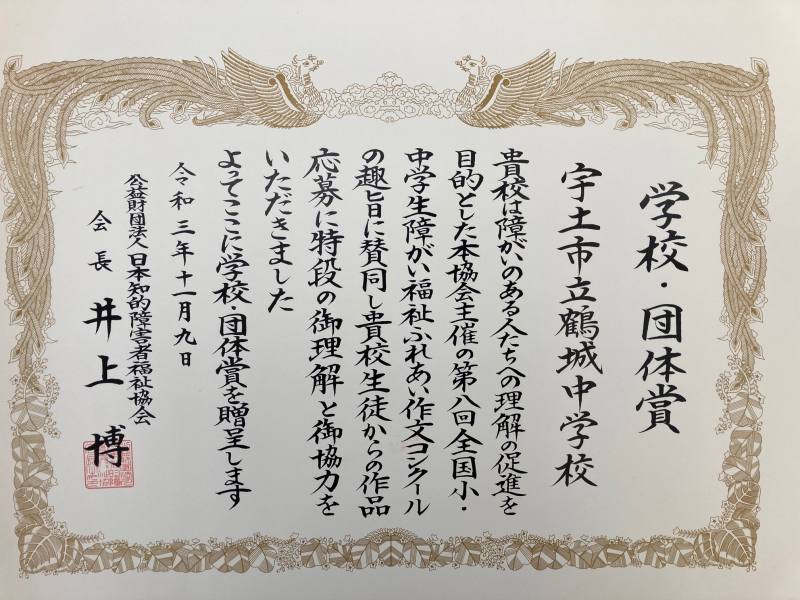 学校・団体賞
宇土市立鶴城中学校
貴校は障がいのある人たちへの理解の促進を
目的とした本協会主催の第八回全国小・
中学生障がい福祉ふれあい作文コンクール
の趣旨に賛同し貴校生徒からの作品
応募に特段の御理解と御協力を
いただきました
よってここに学校・団体賞を贈呈します
令和三年十一月九日
公益財団法人日本知的障害者福祉協会
会長 井上 博